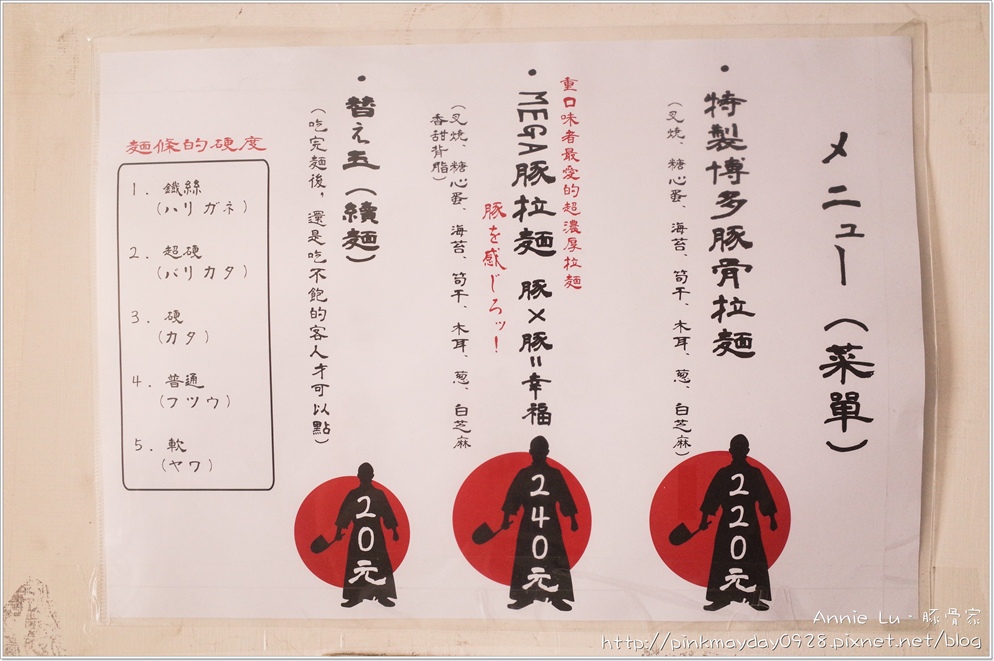 メニュー（菜單）
・特製博多豚骨拉麵
（叉燒、糖心蛋、海苔、筍干、木耳、蔥、白芝麻）
220元
重口味者最愛的超濃厚拉麵
・MEGA豚拉麵 豚×豚=幸福
豚を感じろッ！
（叉燒、糖心蛋、海苔、筍干、木耳、蔥、白芝麻
香甜背脂）
240元
・替え玉（續麵）
（吃完麵後，還是吃不飽的客人才可以點）
20元
麵條的硬度
1. 鐵絲
（ハリガネ）
2. 超硬
（バリカタ）
3. 硬
（カタ）
4. 普通
（フツウ）
5. 軟
（ヤワ）
Annie Lu・豚骨家
http://pinkmayday0928.pixnet.net/blog